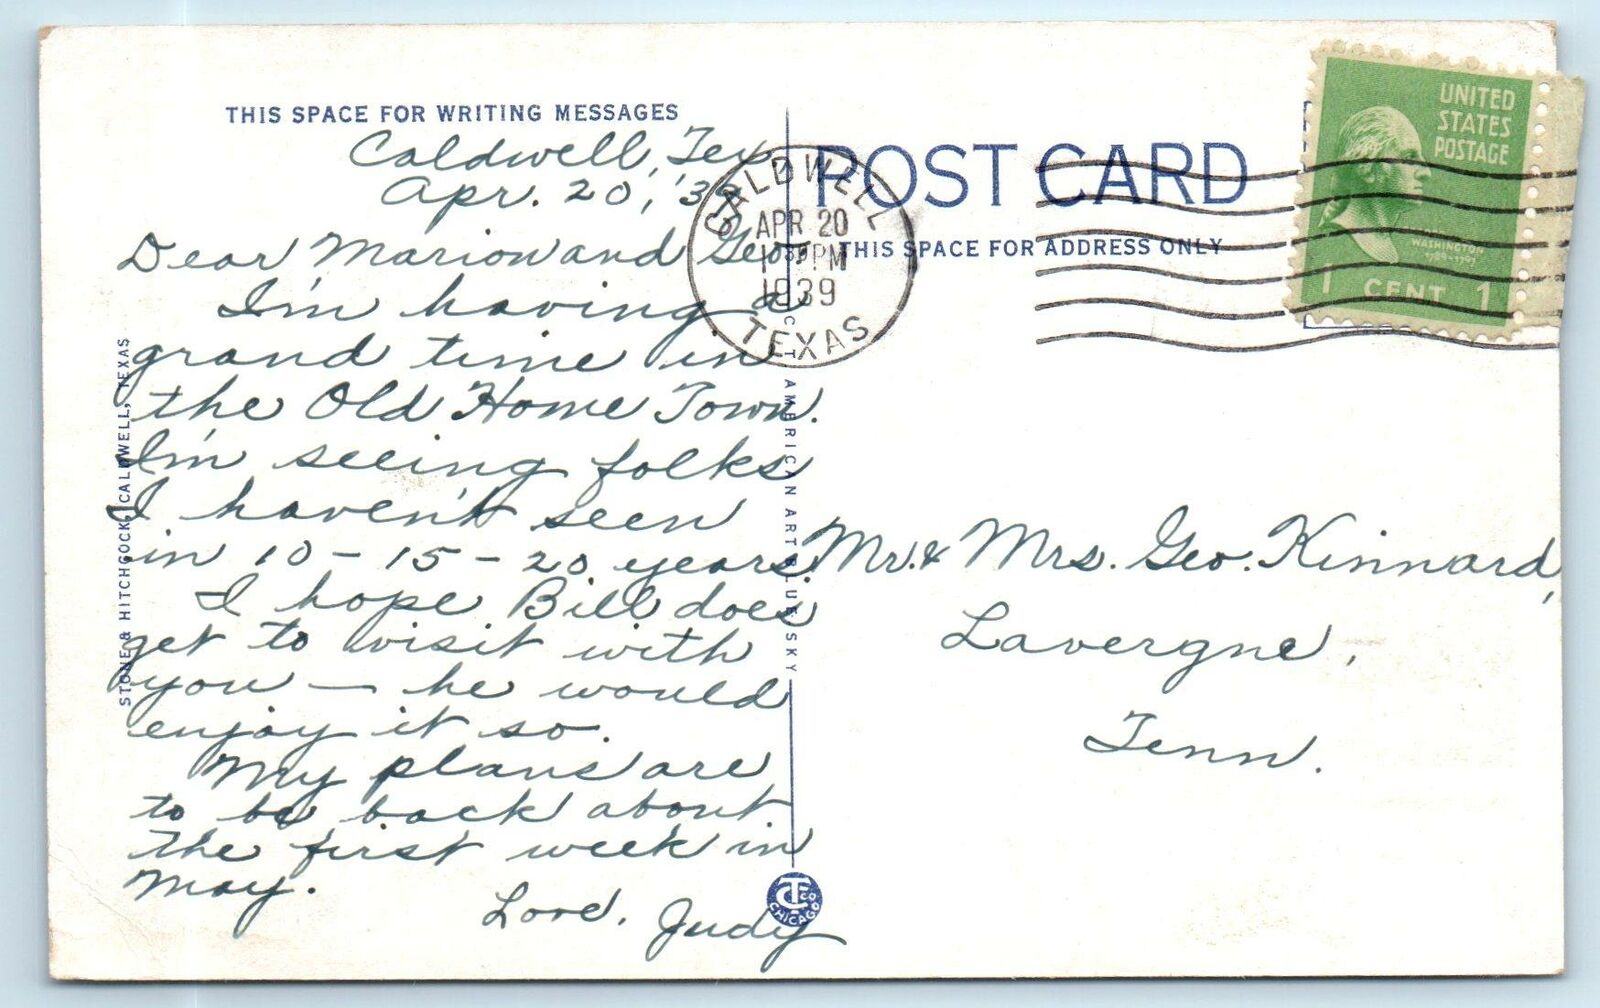 THIS SPACE FOR WRITING MESSAGES
Caldwell, Tex.
Apr. 20, '39
Dear Marion and Geo -
I'm having a
grand time in
the Old Home Town.
I'm seeing folks
I haven't seen
in 10 - 15 - 20 years.
I hope Bill does
get to visit with
you — he would
enjoy it so.
My plans are
to be back about
the first week in
May.
Love, Judy
STONE & HITCHCOCK, CALDWELL, TEXAS
C. T. AMERICAN ART BLUE SKY
CT CO
CHICAGO
POST CARD
THIS SPACE FOR ADDRESS ONLY
CALDWELL
APR 20
PM
1939
TEXAS
UNITED
STATES
POSTAGE
WASHINGTON
1789-1797
1 CENT 1
Mr. & Mrs. Geo. Kinnard,
Lavergne,
Tenn.